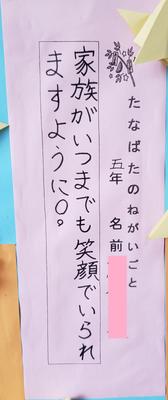 たなばたのねがいごと
五年 名前
家族がいつまでも笑顔でいられ
ますように〇。